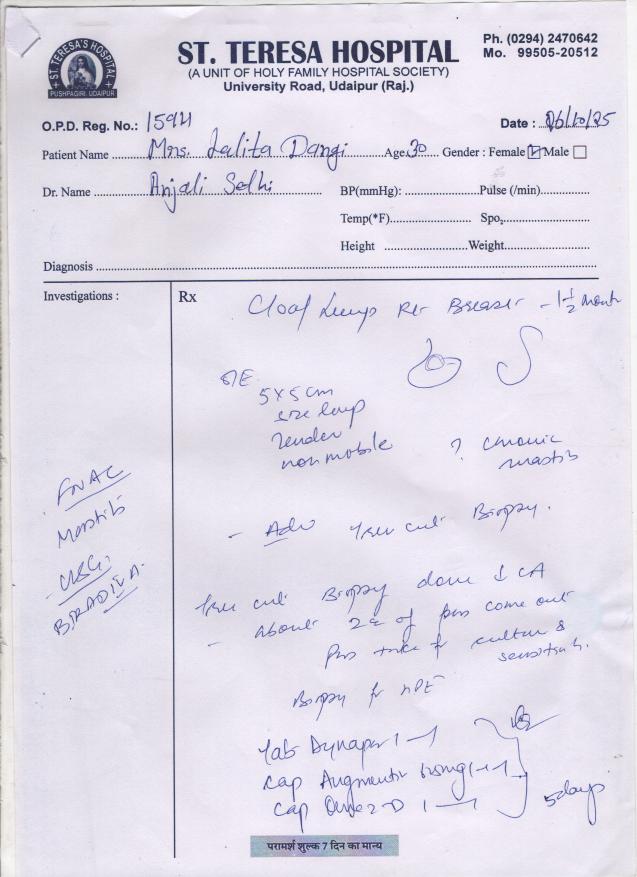 ST. TERESA'S HOSPITAL
PUSHPAGIRI, UDAIPUR
ST. TERESA HOSPITAL
(A UNIT OF HOLY FAMILY HOSPITAL SOCIETY)
University Road, Udaipur (Raj.)
Ph. (0294) 2470642
Mo. 99505-20512
O.P.D. Reg. No.: Date :
Patient Name Mrs. Lalita Dangi Age 30 Gender : Female Male
Dr. Name Anjali BP(mmHg): Pulse (/min)
Temp(*F) Spo2
Height Weight
Diagnosis
Investigations :
FNAC
Mastitis
USG
BIRAD IVA.
Rx
C/o of Lump Rt Breast - 1 1/2 month
O/E
5x5cm
size lump
Tender
non mobile
? chronic
mastitis
- Adv Tru cut Biopsy.
Tru cut Biopsy done LA
- About 2cc of pus come out
Pus for culture &
sensitivity.
Biopsy for HPE
Tab Dynapar 1-1
Cap Augmentin 625mg 1-1-1
Cap D 1
5 days
परामर्श शुल्क 7 दिन का मान्य